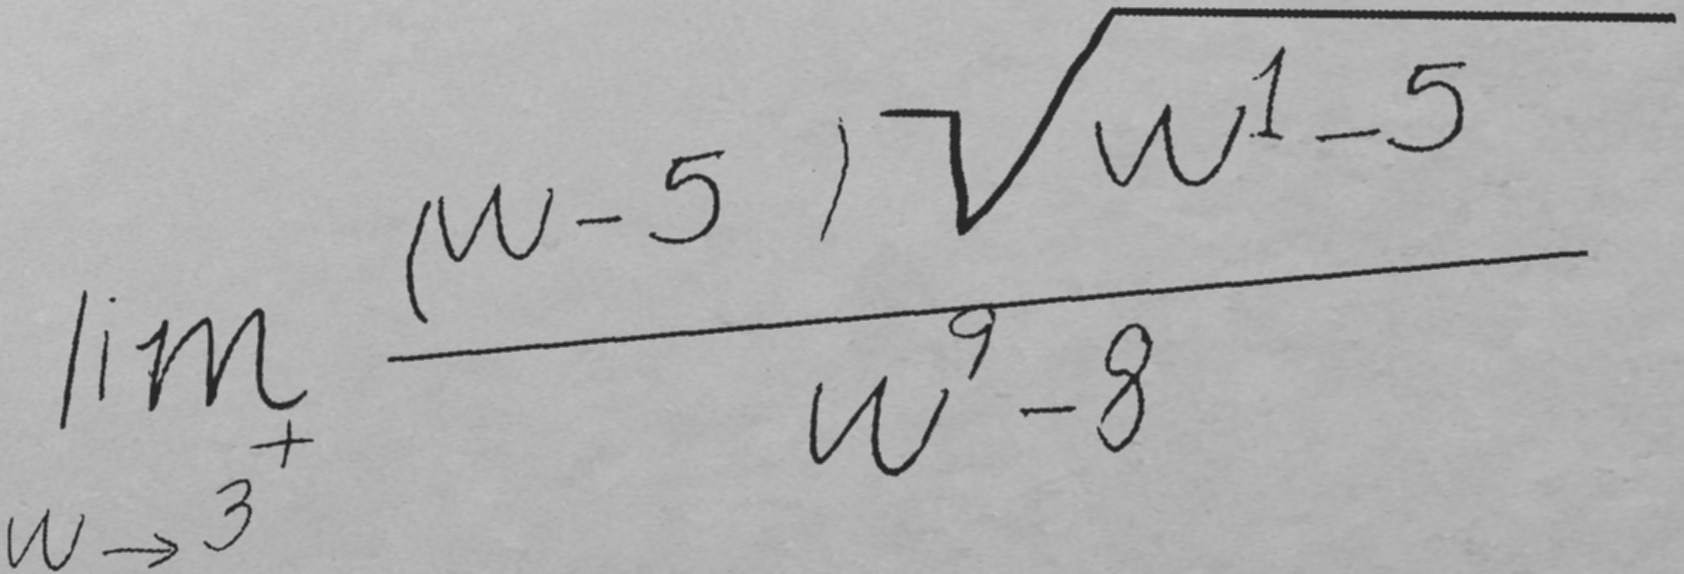 \lim_{w \to 3^+} \frac{(w-5)\sqrt{w^1-5}}{w^9-8}